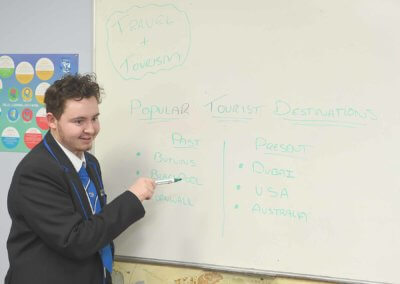 TRAVEL
+
TOURISM
POPULAR TOURIST DESTINATIONS
PAST
• BUTLINS
• BLACKPOOL
CORNWALL
PRESENT
• DUBAI
• USA
• AUSTRALIA